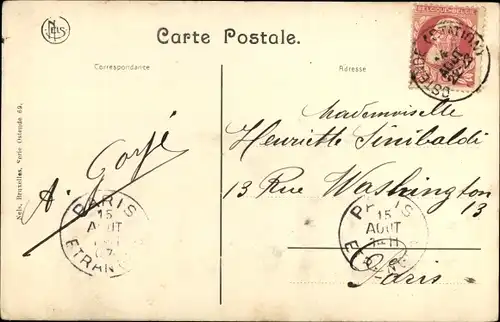 NELS
Carte Postale.
Correspondance
Adresse
BELGIQUE-BELGIË
OSTENDE (STATION)
AOUT
Mademoiselle
Henriette Sinibaldi
13 Rue Washington
13
Paris
A. Gorjé
Nels, Bruxelles, Serie Ostende 69.
PARIS
15
AOUT
ETRANG
PARIS
15
AOUT